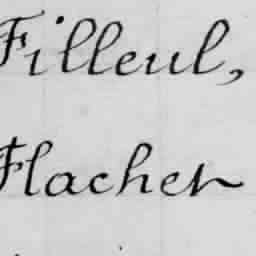 Filleul,
Flacher